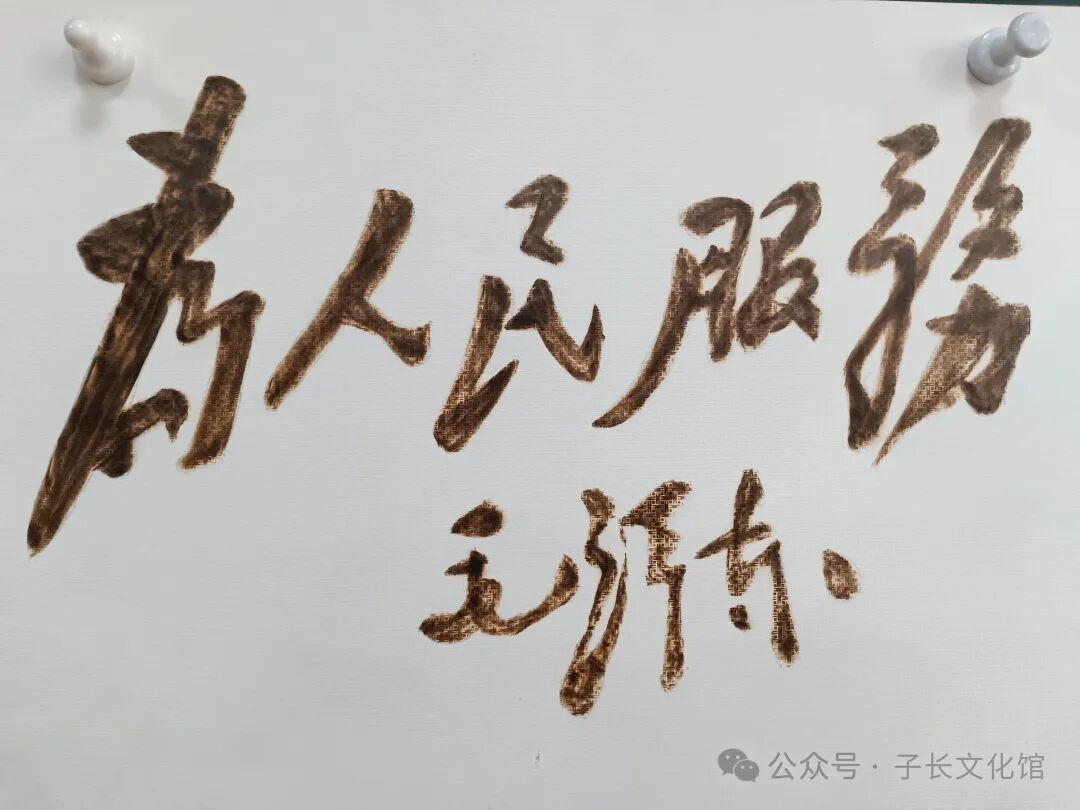 為人民服務
毛泽东
公众号·子长文化馆